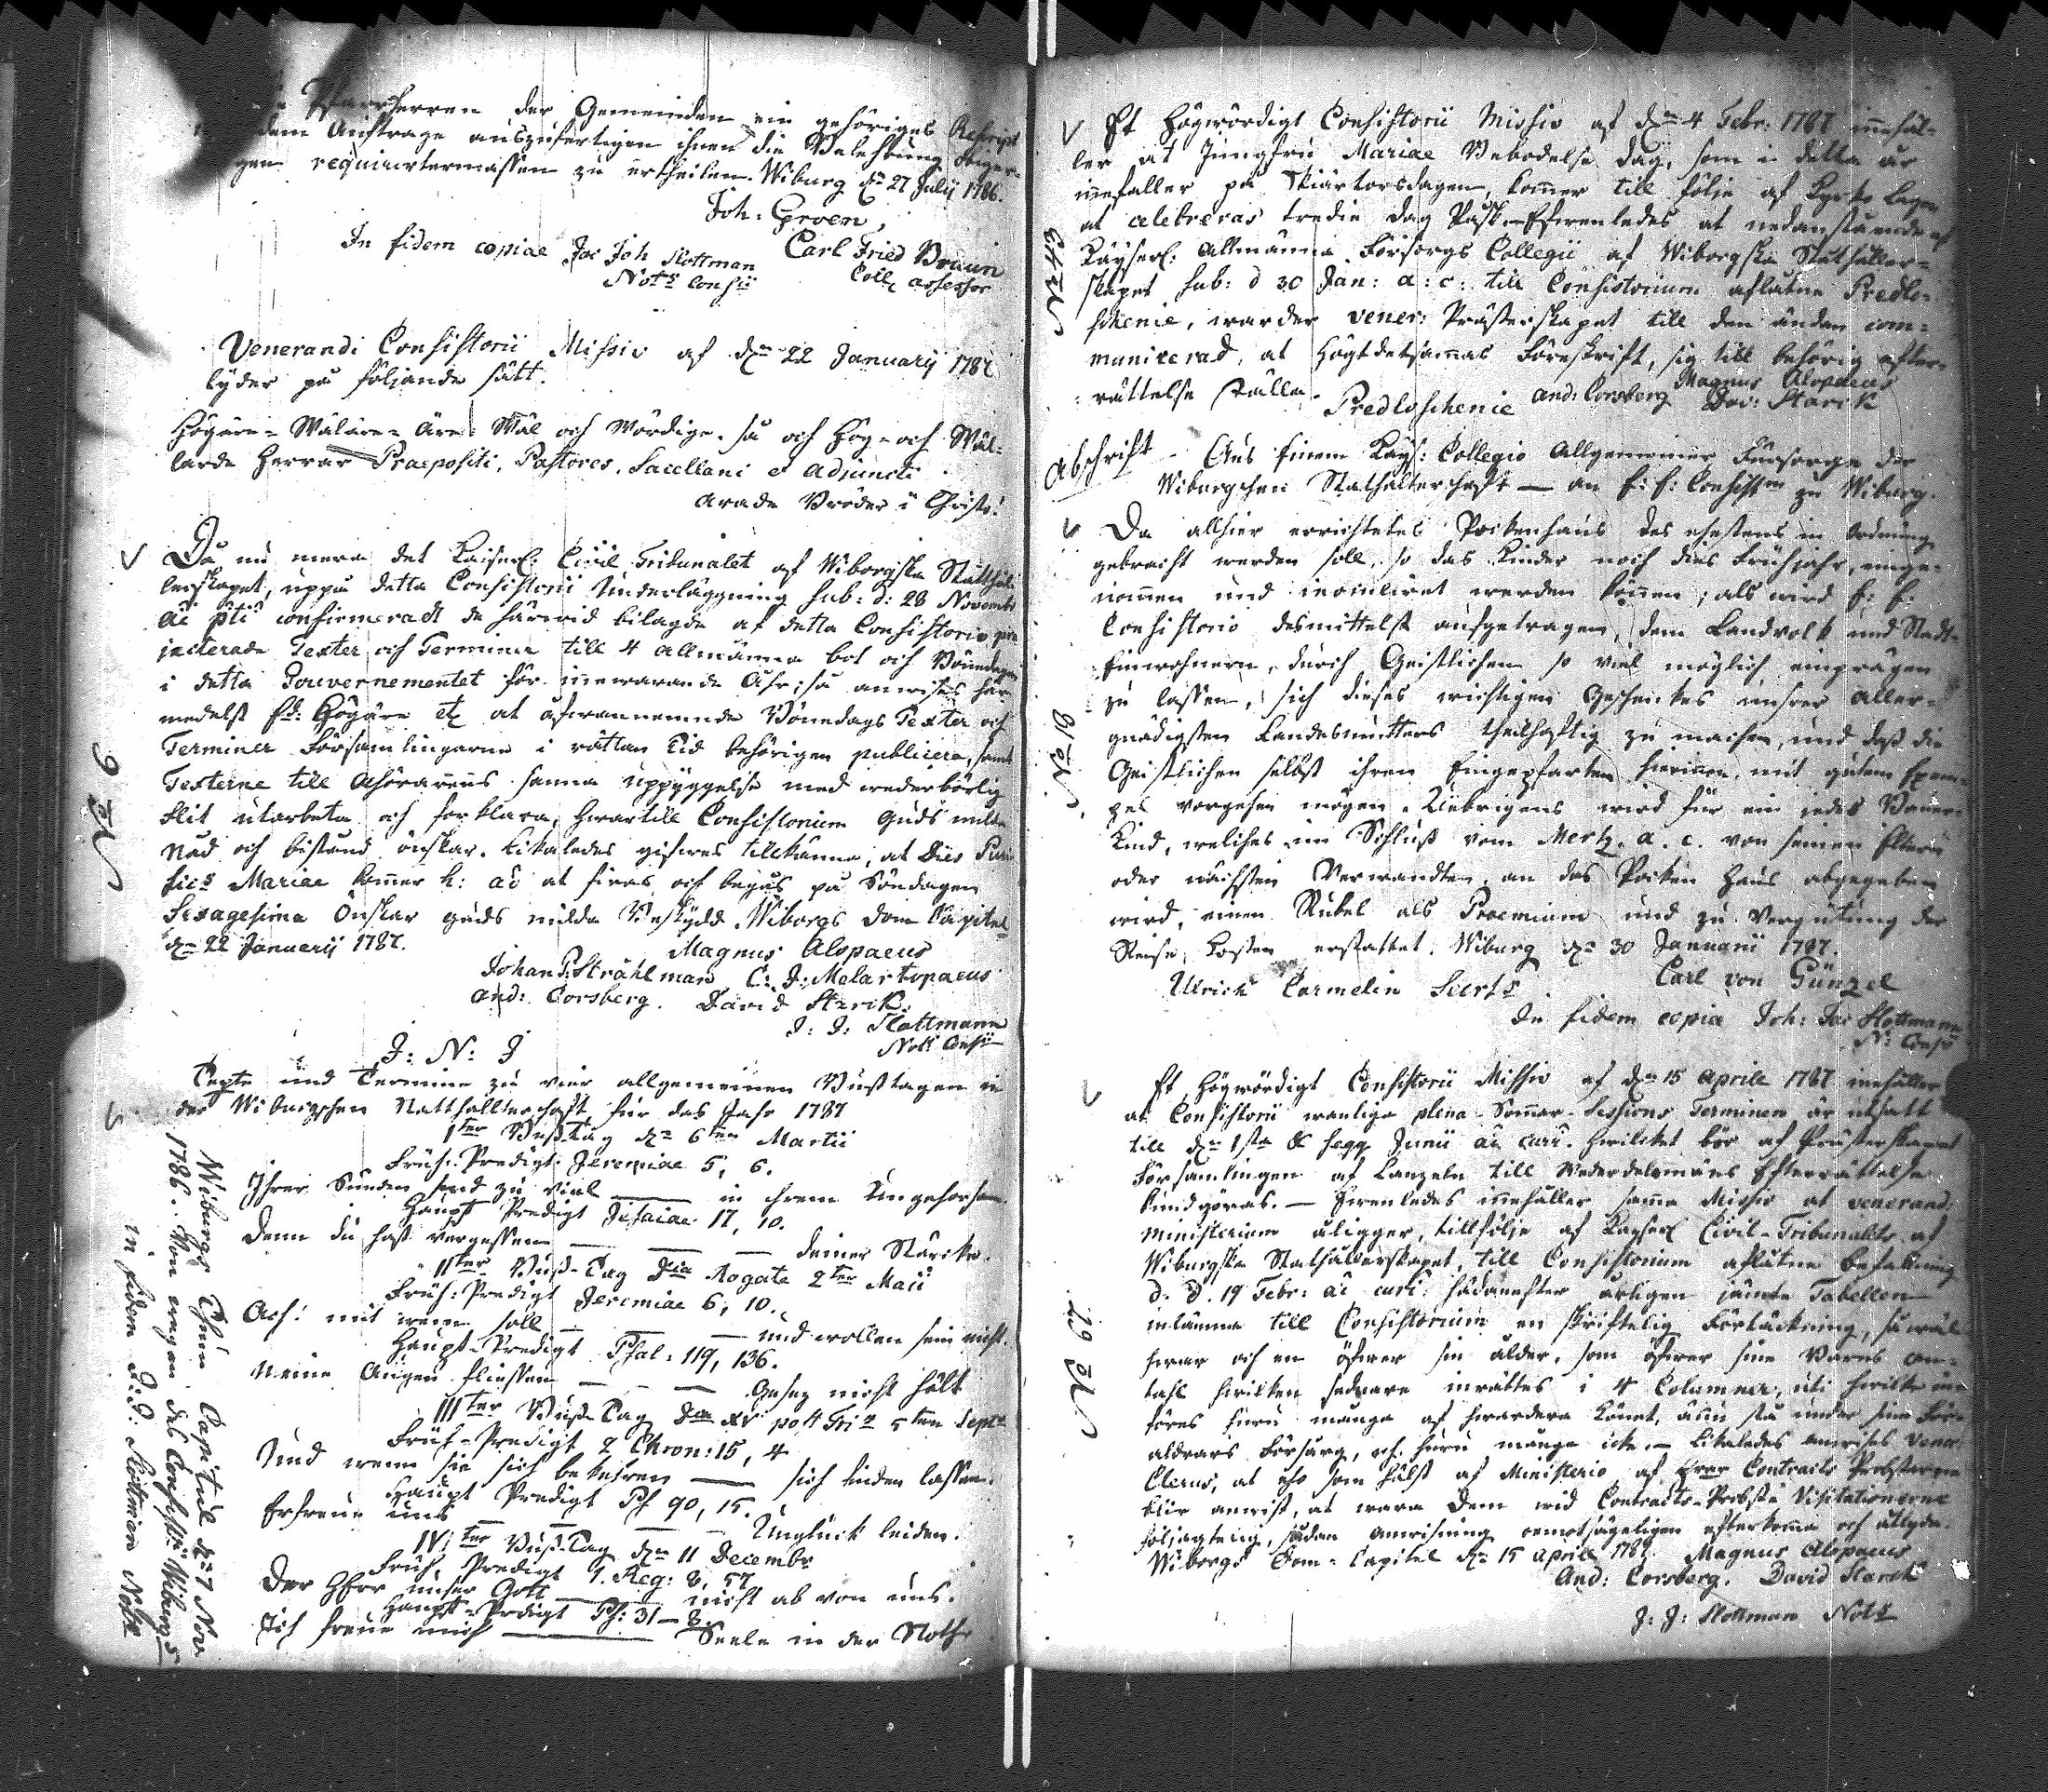 Pfarrherren der Gemeinden ein gehöriges Rescript
dem Auftrage auszufertigen ihnen die Belehrung derer-
gen requirirtermassen zu ertheilen. Wiburg dn 27 Julij 1786.
Joh: Groen,
In fidem copiae Jac Joh Slottman Carl Fried Bruun
Nots Consii Coll assessor
Venerandi Consistorii Missiv af dn 22 Januarij 1787
lyder på följande sätt.
Högäre- Wäläre- Äre: Wäl och Wördige, så och Hög- och Wäl-
lärde Herrar Praepositi, Pastores, Sacellani et Adjuncti
ärade Bröder i Christo!
Då nu mera det Kaiserl: Civil Tribunalet af Wiborgska Ståtthål-
lerskapet, uppå detta Consistorii Underläggning sub: d: 28 Novembr
ai pti confirmeradt de härwid bilagde af detta Consistorio pro-
jecterade Texter och Terminer till 4 allmänna bot och Bönedagar
i detta Gouvernementet för innewarande Åhr; så anwises här
medelst Ed: Högäre etc at ofwannemnde Bönedags Texter och
Terminer Församlingarne i rättan Tid behörigen publicera, samt
Texterne till Åhörarens sanna uppbyggelse med wederbörlig
flit utarbeta och förklara, hwartill Consistorium Guds milda
Nåd och bistånd önskar. Likaledes gifwes tillkänna, at Dies Puri-
fics Mariae kommer h: ao at firas och begås på Söndagen
Sexagesima Önskar Guds milda Beskydd. Wiborgs Dom Capitel
dn 22 Januarij 1787. Magnus Alopaeus
Johan P: Strahlman C: J: Melartopaeus
And: Corsberg. David Starck.
J: J: Slottmann
Nots Consii
9
J: N: J
Texte und Termine zu vier allgemeinen Busstagen in
der Wiburgschen Statthalterschaft für das Jahr 1787
1ter Buss-Tag dn 6ten Martii
Früh-Predigt Jeremiae 5, 6.
Ihrer Sünden sind zu viel — in ihrem Ungehorsam.
Haupt Predigt Jesaiae 17, 10.
Denn du hast vergessen — — — deiner Stärcke.
IIter Buss-Tag Dca Rogate 2ter Maii
Früh-Predigt Jeremiae 6, 10.
Ach! mit wem soll — — — und wollen sein nicht.
Haupt-Predigt Psal: 119, 136.
Meine Augen fliessen — — — Gesez nicht hält
IIIter Buss-Tag Dca XV post Trin 5ten Septr
Früh-Predigt 2 Chron: 15, 4
Und wenn sie sich bekehren — sich finden lassen.
Haupt Predigt Ps 90, 15.
Erfreue uns — — — Unglück leiden.
IV:ter Buss-Tag dn 11 Decembr
Früh Predigt 1. Reg: 8, 57
Der HErr unser Gott — — nicht ab von uns.
Haupt-Predigt Ps: 31-8.
Ich freue mich — Seele in der Noth
Wiburgs Thum Capitul dn 7 Novr
1786. Von wegen des Consistii Wiburgs
in fidem J: J: Slottman Nots
Et Högwördigt Consistorii Missiv af dn 4 Febr: 1787 innehål-
ler at Jungfru Mariae Bebodelse dag, som i detta år
innefaller på Skiärtorsdagen, kommer till följe af Kyrko Lagen
at celebreras tredie dag Påsk.- Efwenledes at nedanstående af
Kayserl: Allmänna Försorgs Collegii af Wiborgska Ståthåller-
skapet sub: d 30 Jan: a: c: till Consistorium aflåtna Predlo-
schenie, warder vener: Prästerskapet till den ändan com-
municerad, at Högtdetsammas Föreskrift, sig till behörig efter-
rättelse ställa. And: Corsberg Magnus Alopaeus
Predloschenie Dav: Starck
Abschrift - Aus Einem Kays: Collegio Allgemeiner Fürsorge der
Wiburgschen Stathalterschaft — an E: E: Consistm zu Wiburg.
Da allhier errichtetes Pockenhaus des ehestens in Ordnung
gebracht werden soll, so das Kinder noch dies Frühjahr, einge-
nommen und inoculiret werden können; als wird E: E:
Consistorio desmittelst aufgetragen, dem Landvolk und Stadt-
Einwohnern, durch Geistlichen so viel möglich einprägen
zu lassen, sich dieses wichtigen Geschenckes unsrer aller-
gnädigsten Landesmutters theilhaftig zu machen, und dass die
Geistlichen selbst ihren Eingepfarten hierinnen, mit gutem Exem-
pel vorgehen mögen. Uebrigens wird für ein jedes Bauer-
Kind, welches im Schluss vom Mertz. a. c. von seinen Eltern
oder nächsten Verwandten an das Pocken Haus abgegeben
wird, einen Rubel als Praemium und zu Vergütung der
Reise Kosten erstattet. Wiburg dn 30 Januarii 1787.
Ulrich Carmelin Secrts Carl von Günzel
In fidem copia Joh: Jac Slottmann
N: Consii
18
Et Högwördigt Consistorii Missiv af dn 15 Aprile 1787 inehåller
at Consistorii wanlige plena Sommar-Sessions Terminen är utsatt
till dn 1sta & seqq Junii ai curr. hwilcket bör af Prästerskapet
Församlingen af Canzelen till Wederdelomäns Efterrättelse
kundgöras. — Efwenledes innehåller samma Missiv at venerand:
Ministerium åligger, tillfölje af Kayserl Civil-Tribunalets af
Wiburgska Stathållerskapet, till Consistorium aflåtne befallning
d: d. 19 Febr: ai curr: hädanefter årligen jämte Tabellen
inlämna till Consistorium en skriftelig Förtäckning, så wäl
hwar och en öfwer sin ålder, som öfwer sine Barns an-
tahl hwilken sednare inrättes i 4 Columner, uti hwilka in-
föres huru många af hwardera Könet, ännu stå under sina För-
äldrars Försorg, och huru många icke. — Likaledes anwises Vener:
Clerus, at eho som hälst af Ministerio, af Contracts Probstarne
blir anwist, at wara Dem wid Contracts-Probste Visitationerne
följagtelig, sådan anwisning oemotsägeligen efterkomma och åtlyda.
Wiborgs Dom-Capitel dn 15 Aprill 1787. Magnus Alopaeus
And: Corsberg. David Starck
J: J: Slottman Nots